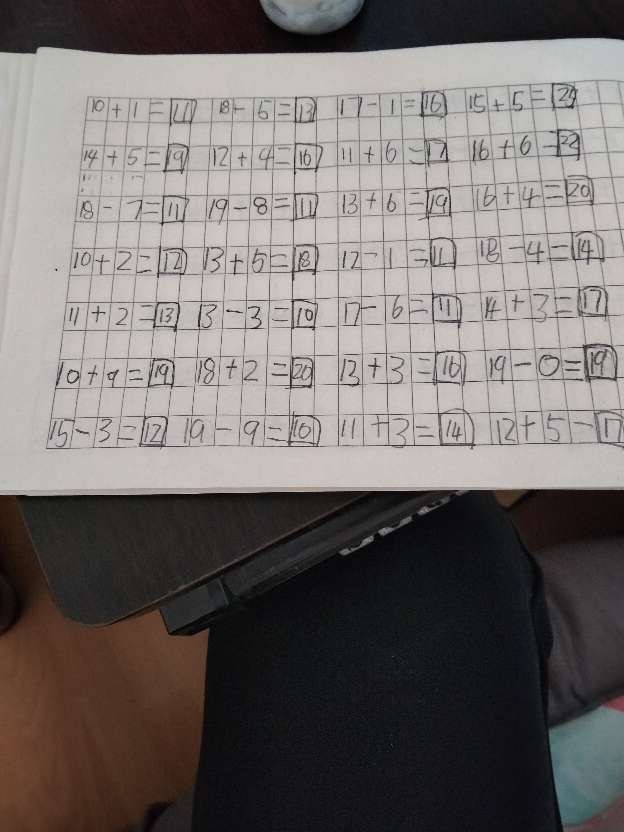 10 + 1 = 11 18 - 5 = 13 17 - 1 = 16 15 + 5 = 20
14 + 5 = 19 12 + 4 = 16 11 + 6 = 17 16 + 6 = 22
18 - 7 = 11 19 - 8 = 11 13 + 6 = 19 16 + 4 = 20
10 + 2 = 12 13 + 5 = 18 12 - 1 = 11 18 - 4 = 14
11 + 2 = 13 13 - 3 = 10 17 - 6 = 11 14 + 3 = 17
10 + 9 = 19 18 + 2 = 20 13 + 3 = 16 19 - 0 = 19
15 - 3 = 12 19 - 9 = 10 11 + 3 = 14 12 + 5 - 17